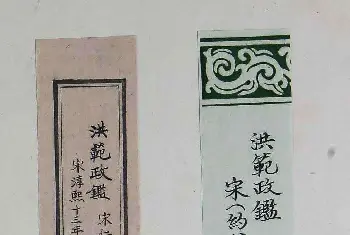 洪範政鑑 宋
宋淳熙十三年
洪範政鑑
宋(約